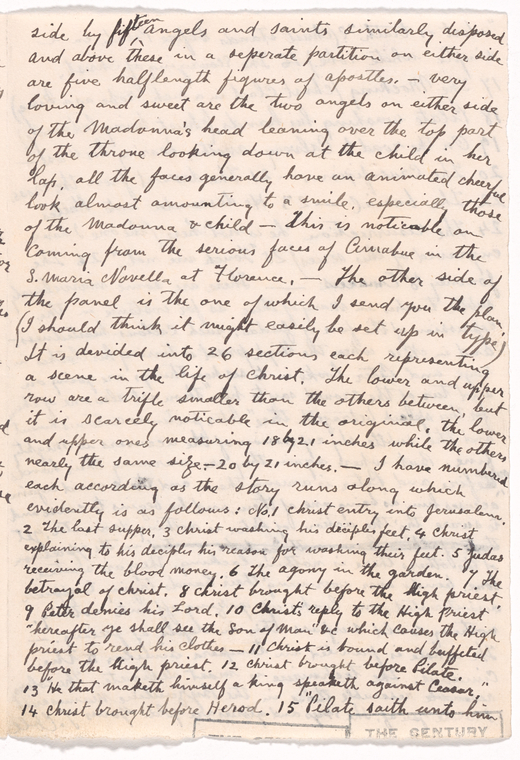 side by fifteen angels and saints similarly disposed
and above these in a seperate partition on either side
are five halflength figures of apostles. — very
loving and sweet are the two angels on either side
of the Madonna's head leaning over the top part
of the throne looking down at the child in her
lap, all the faces generally have an animated cheerful
look almost amounting to a smile, especially those
of the Madonna & child — This is noticable on
coming from the serious faces of Cimabue in the
S. Maria Novella at Florence. — The other side of
the panel is the one of which I send you the plan,
(I should think it might easily be set up in type)
It is divided into 26 sections each representing
a scene in the life of Christ. The lower and upper
row are a trifle smaller than the others between, but
it is scarcely noticable in the original, the lower
and upper ones measuring 18 by 21 inches while the others
nearly the same size — 20 by 21 inches. — I have numbered
each according as the story runs along which
evidently is as follows: No. 1 christ entry into Jerusalem,
2 The last supper, 3 Christ washing his deciples feet, 4 Christ
explaining to his deciples his reason for washing their feet. 5 Judas
receiving the blood money. 6 The agony in the garden. 7 The
betrayal of christ. 8 Christ brought before the High priest,
9 Peter denies his Lord. 10 Christ's reply to the High Priest
"hereafter ye shall see the Son of Man" &c which causes the High
priest to rend his clothes — 11 Christ is bound and buffeted
before the High priest. 12 christ brought before Pilate.
13 "He that maketh himself a king speaketh against Ceasar."
14 Christ brought before Herod. 15 "Pilate saith unto him
THE CENTURY